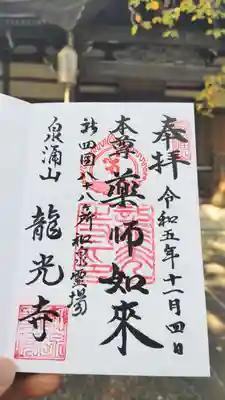 奉拝
令和五年十一月四日
本尊 薬師如來
新四国八十八ヶ所 和泉霊場
泉涌山
龍光寺